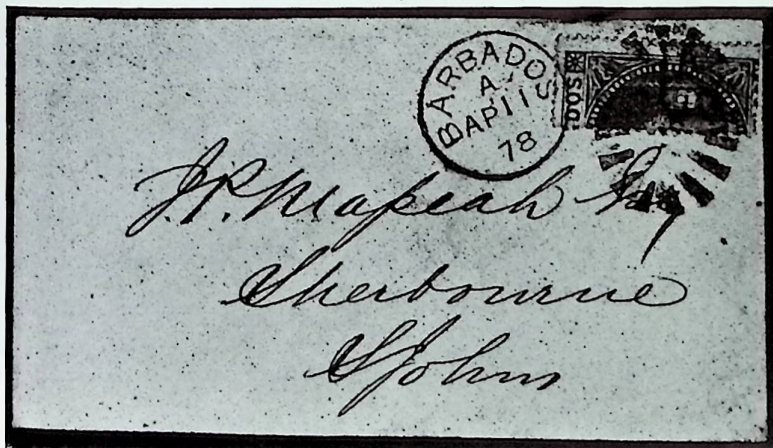 BARBADOS
A
AP 11
78
DOS
J.P. Mapeah Esq
Sherbourne
St Johns